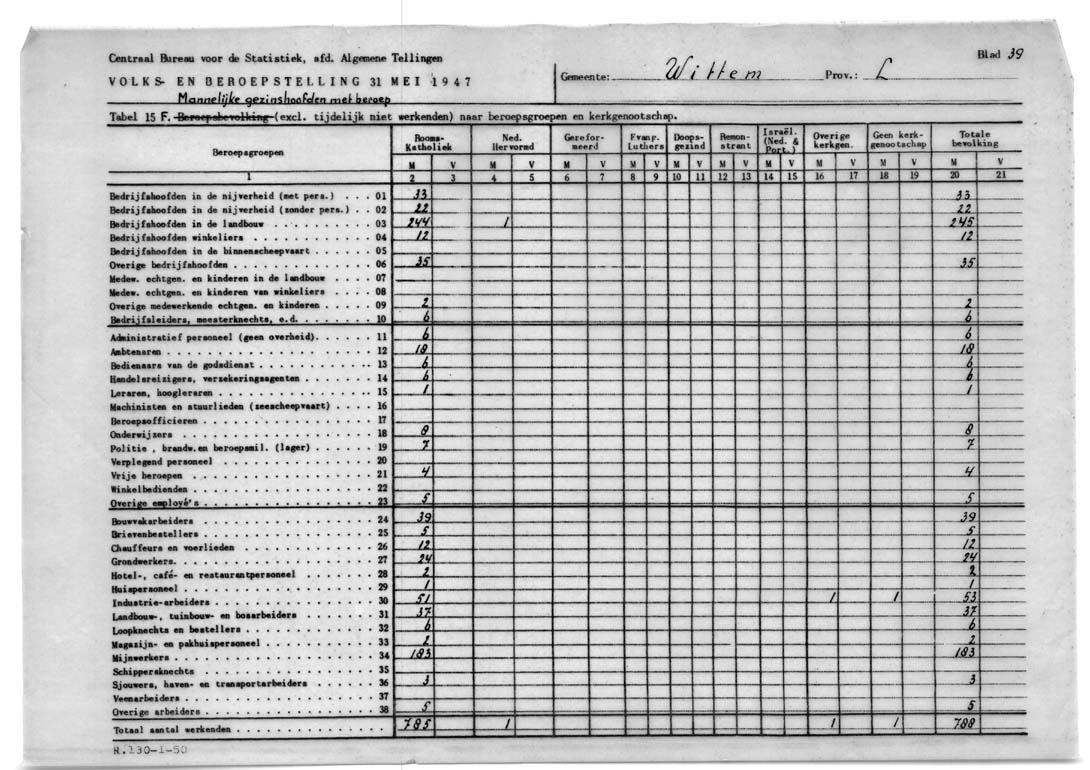 Centraal Bureau voor de Statistiek, afd. Algemene Tellingen
Blad 39
VOLKS- EN BEROEPSTELLING 31 MEI 1947
Gemeente: Wittem Prov.: L
Mannelijke gezinshoofden met beroep
Tabel 15 F. Beroepsbevolking (excl. tijdelijk niet werkenden) naar beroepsgroepen en kerkgenootschap.
Beroepsgroepen Rooms-Katholiek Ned. Hervormd Gereformeerd Evang. Luthers Doopsgezind Remonstrant Israël. (Ned. & Port.) Overige kerkgen. Geen kerkgenootschap Totale bevolking
M V M V M V M V M V M V M V M V M V M V
1 2 3 4 5 6 7 8 9 10 11 12 13 14 15 16 17 18 19 20 21
Bedrijfshoofden in de nijverheid (met pers.) . . . 01 33 33
Bedrijfshoofden in de nijverheid (zonder pers.) . 02 22 22
Bedrijfshoofden in de landbouw . . . . . . . . . . 03 244 1 245
Bedrijfshoofden winkeliers . . . . . . . . . . . . 04 12 12
Bedrijfshoofden in de binnenscheepvaart . . . . . 05
Overige bedrijfshoofden . . . . . . . . . . . . . 06 35 35
Medew. echtgen. en kinderen in de landbouw . . . . 07
Medew. echtgen. en kinderen van winkeliers . . . . 08
Overige medewerkende echtgen. en kinderen . . . . 09 2 2
Bedrijfsleiders, meesterknechts, e.d. . . . . . . 10 6 6
Administratief personeel (geen overheid). . . . . 11 6 6
Ambtenaren . . . . . . . . . . . . . . . . . . . . 12 18 18
Bedienaars van de godsdienst . . . . . . . . . . . 13 6 6
Handelsreizigers, verzekeringsagenten . . . . . . 14 6 6
Leraren, hoogleraren . . . . . . . . . . . . . . . 15 1 1
Machinisten en stuurlieden (zeescheepvaart) . . . 16
Beroepsofficieren . . . . . . . . . . . . . . . . 17
Onderwijzers . . . . . . . . . . . . . . . . . . . 18 8 8
Politie , brandw. en beroepsmil. (lager) . . . . . 19 7 7
Verplegend personeel . . . . . . . . . . . . . . . 20
Vrije beroepen . . . . . . . . . . . . . . . . . . 21 4 4
Winkelbedienden . . . . . . . . . . . . . . . . . 22
Overige employé's . . . . . . . . . . . . . . . . 23 5 5
Bouwvakarbeiders . . . . . . . . . . . . . . . . . 24 39 39
Brievenbestellers . . . . . . . . . . . . . . . . 25 5 5
Chauffeurs en voerlieden . . . . . . . . . . . . . 26 12 12
Grondwerkers. . . . . . . . . . . . . . . . . . . 27 24 24
Hotel-, café- en restaurantpersoneel . . . . . . . 28 2 2
Huispersoneel . . . . . . . . . . . . . . . . . . 29 1 1
Industrie-arbeiders . . . . . . . . . . . . . . . 30 51 1 1 53
Landbouw-, tuinbouw- en bosarbeiders . . . . . . . 31 37 37
Loopknechts en bestellers . . . . . . . . . . . . 32 6 6
Magazijn- en pakhuispersoneel . . . . . . . . . . 33 2 2
Mijnwerkers . . . . . . . . . . . . . . . . . . . 34 183 183
Schippersknechts . . . . . . . . . . . . . . . . . 35
Sjouwers, haven- en transportarbeiders . . . . . . 36 3 3
Veenarbeiders . . . . . . . . . . . . . . . . . . 37
Overige arbeiders . . . . . . . . . . . . . . . . 38 5 5
Totaal aantal werkenden . . . . . . . . . . . . . 785 1 1 1 788
R.130-1-50